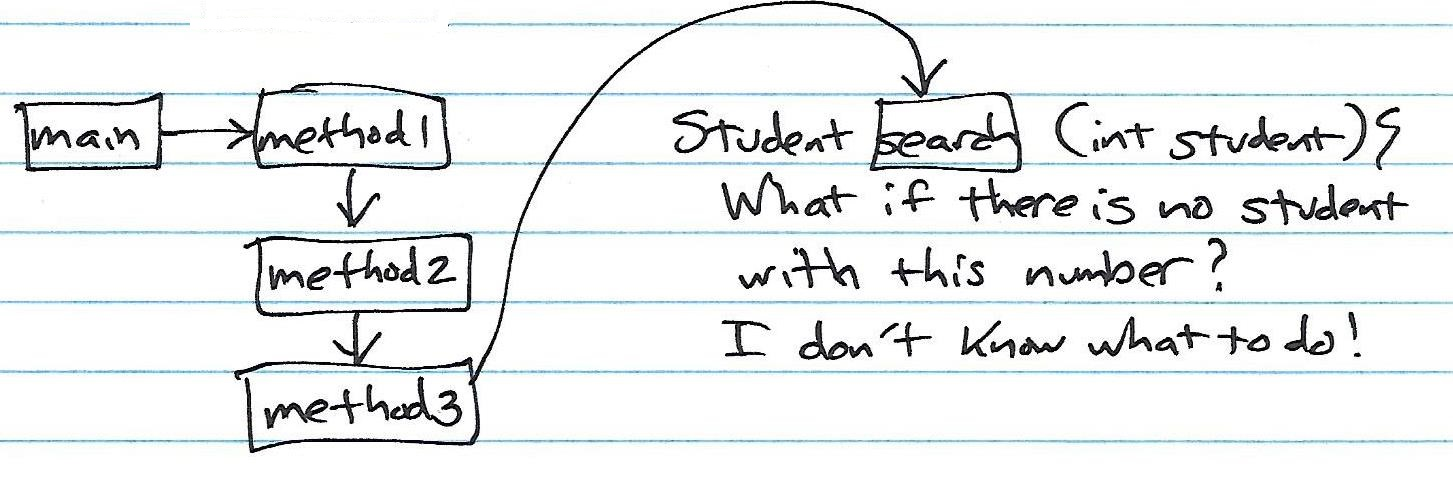 main
method1
method2
method3
Student search (int student){
What if there is no student
with this number?
I don't know what to do!